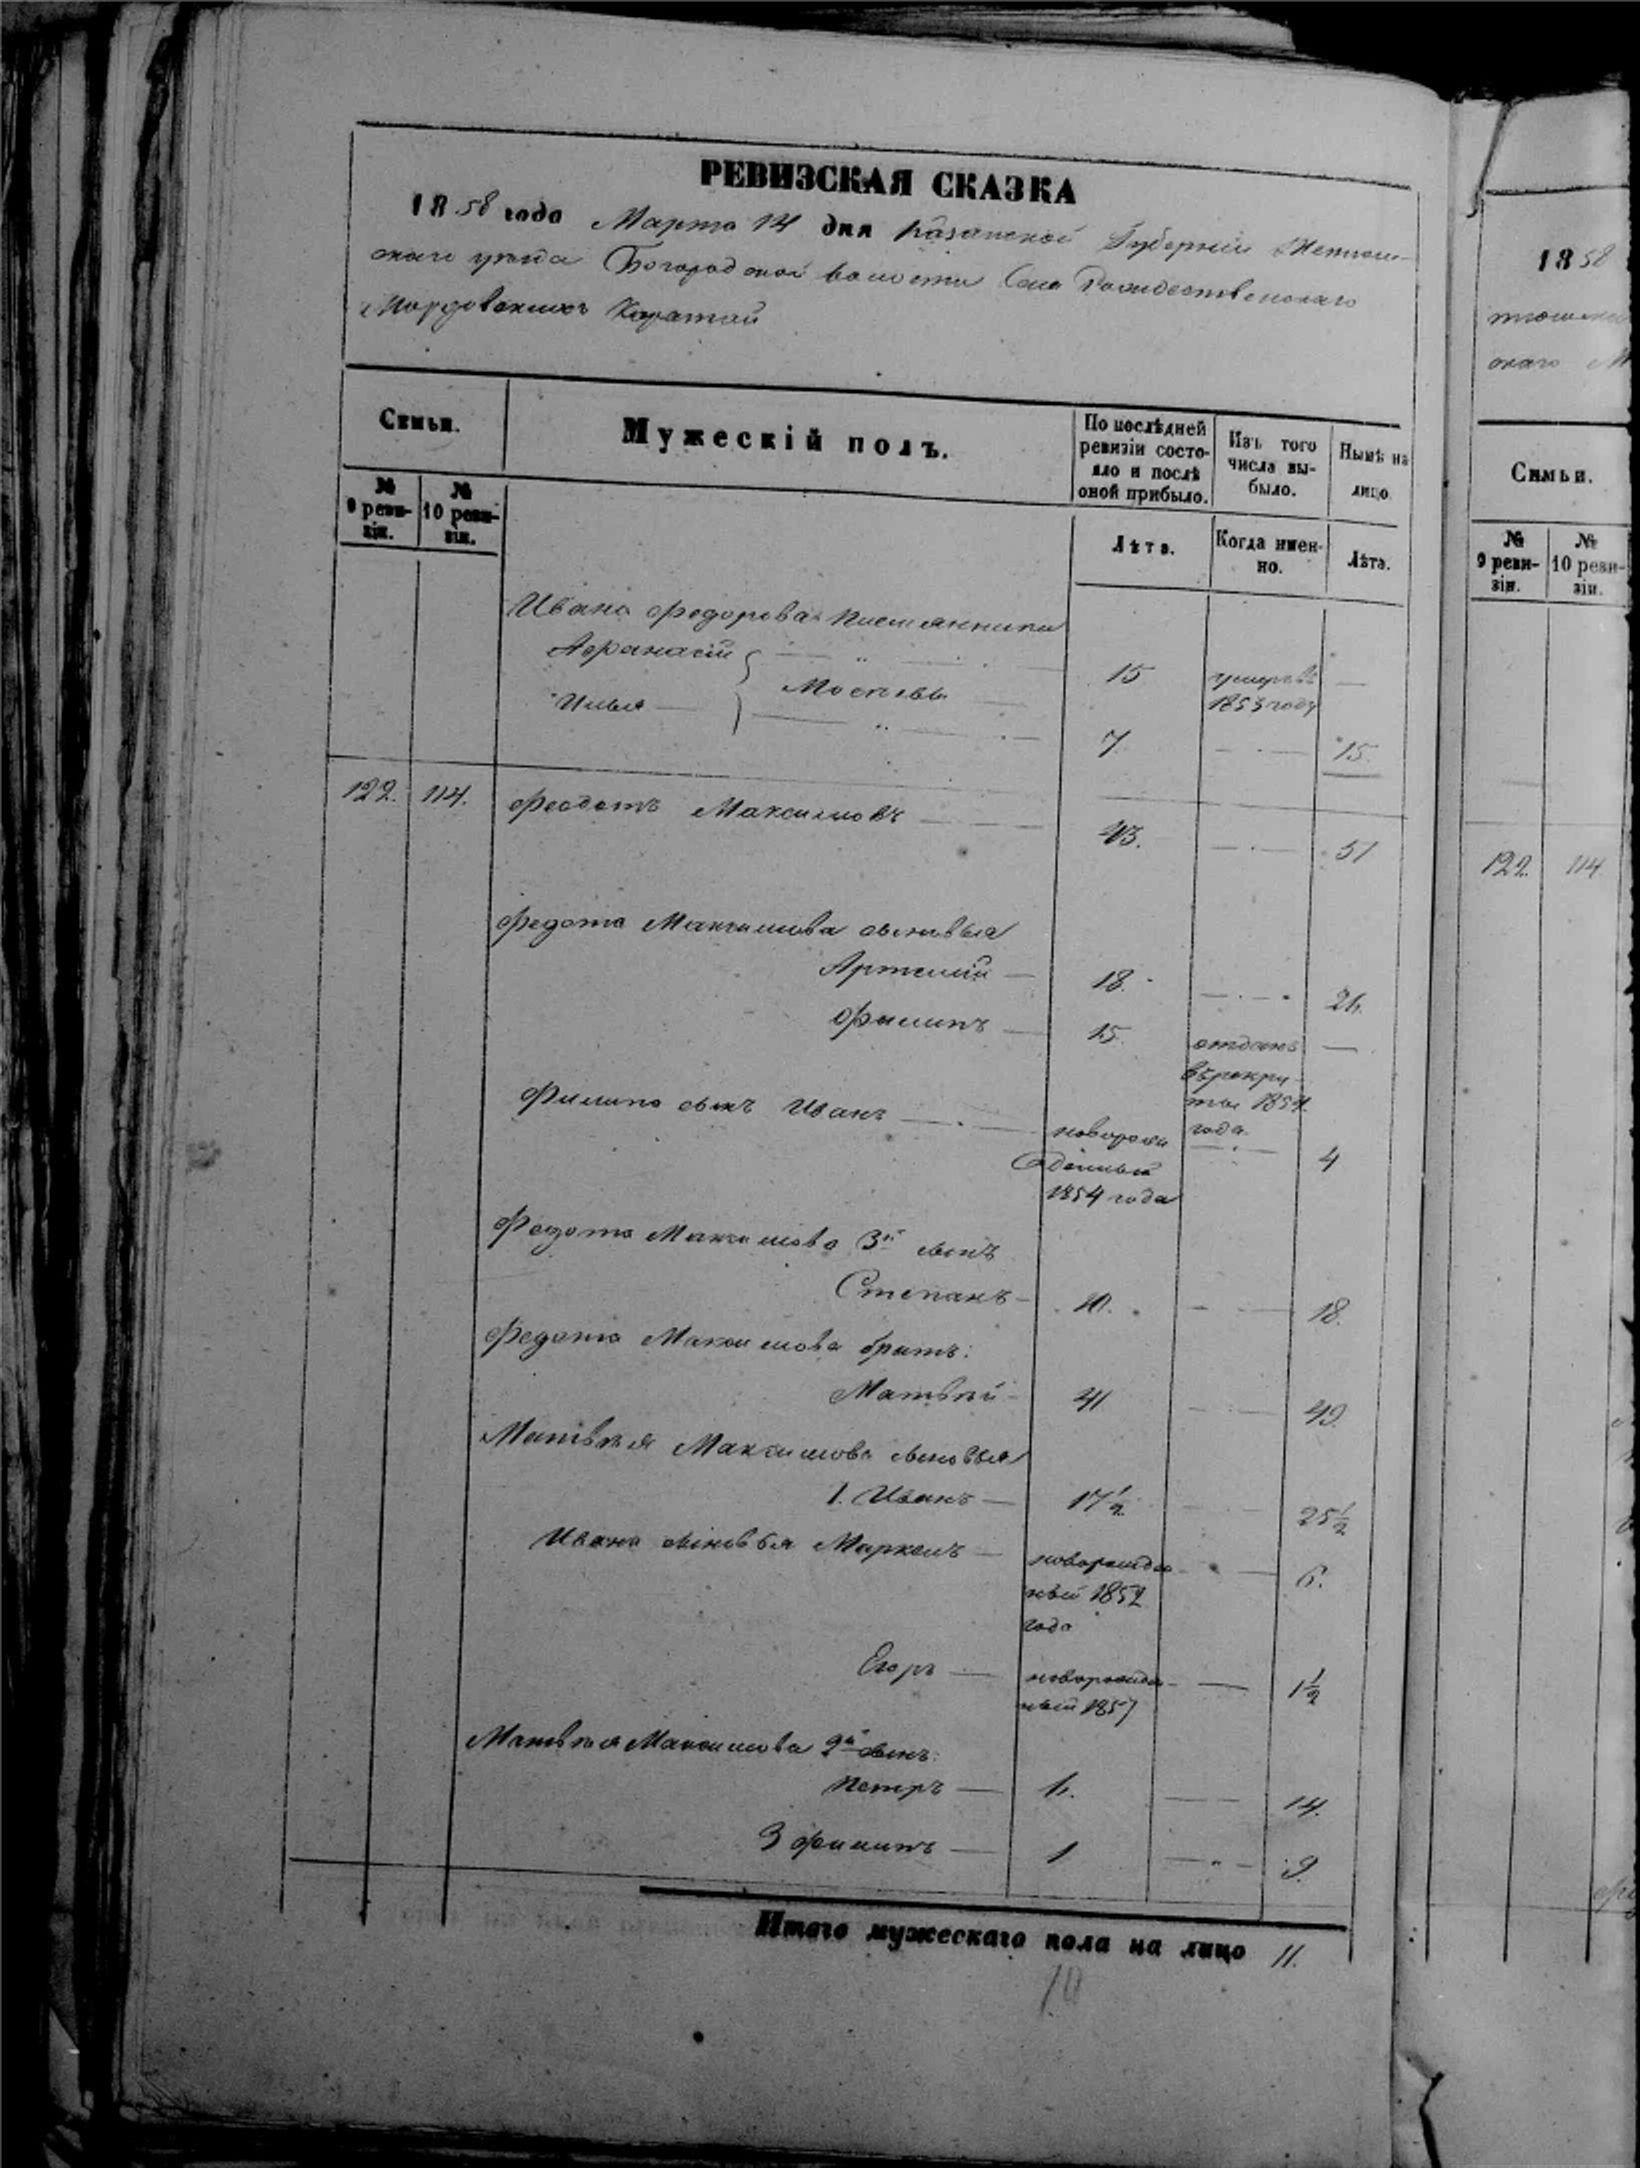 РЕВИЗСКАЯ СКАЗКА
1858 года Марта 14 дня Казанской Губернии Тетюш-
скаго уезда Богородской волости Села Рождественскаго
Мордовскихъ Каратай
Семьи.
Мужескій полъ.
По послѣдней ревизіи состо-яло и послѣ оной прибыло.
Изъ того числа вы-было.
Нынѣ на лицо.
№ 9 реви-зіи.
№ 10 реви-зіи.
Лѣта.
Когда имен-но.
Лѣта.
Ивана Федорова племянники
Афанасій
Мосѣевы
15
умеръ въ
1853 году
Илья
7
15.
122. 114. Феодотъ Максимовъ 43. 51
Федота Максимова сыновья
Артемій 18. 26.
Филипъ 15. отданъ
въ рекру-
ты 1854
года.
Филипа сынъ Иванъ новорож
денный
1854 года
4
Федота Максимова 3й сынъ
Степанъ 10. 18.
Федота Максимова братъ:
Матвѣй 41 49.
Матвѣя Максимова сыновья
1. Иванъ 17½ 25½
Ивана сыновья Маркелъ новорожден
ный 1852
года
6.
Егоръ новорожден-
ный 1857
1½
Матвѣя Максимова 2й сынъ:
Петръ 6. 14.
3 Филипъ 1 9.
Итого мужескаго пола на лицо 11.
10
1858
тюшска
скаго М
Семьи.
№ 9 реви-зіи.
№ 10 реви-зіи.
122. 114